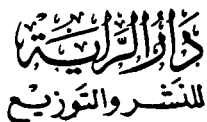 دَارُ الرَّايَةِ
للنشر والتوزيع